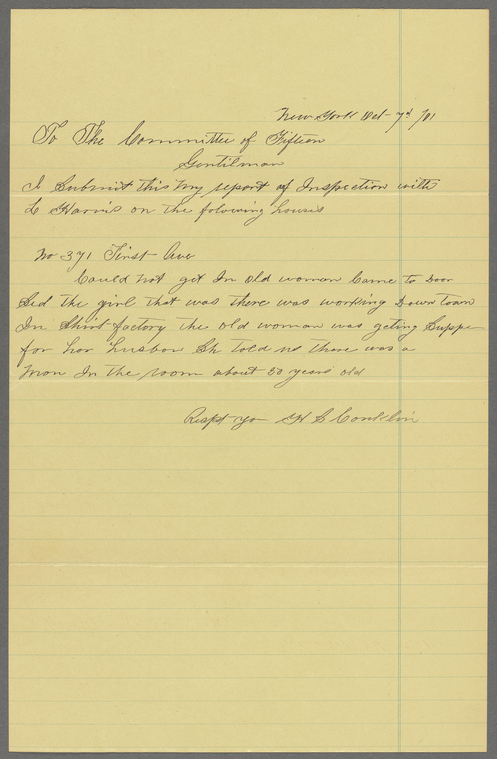 New York Oct - 7th /01
To The Committee of Fifteen
Gentilman
I Submit this my report of Inspection with
L Harris on the folowing houses
No 371 First Ave
Could not get In old woman Came to Door
Sed the girl that was there was working Down town
In Shirt factory the old woman was geting Suppe
for her husban Sh told us there was a
man In the room about 50 years old
Respt yo H S Conklin